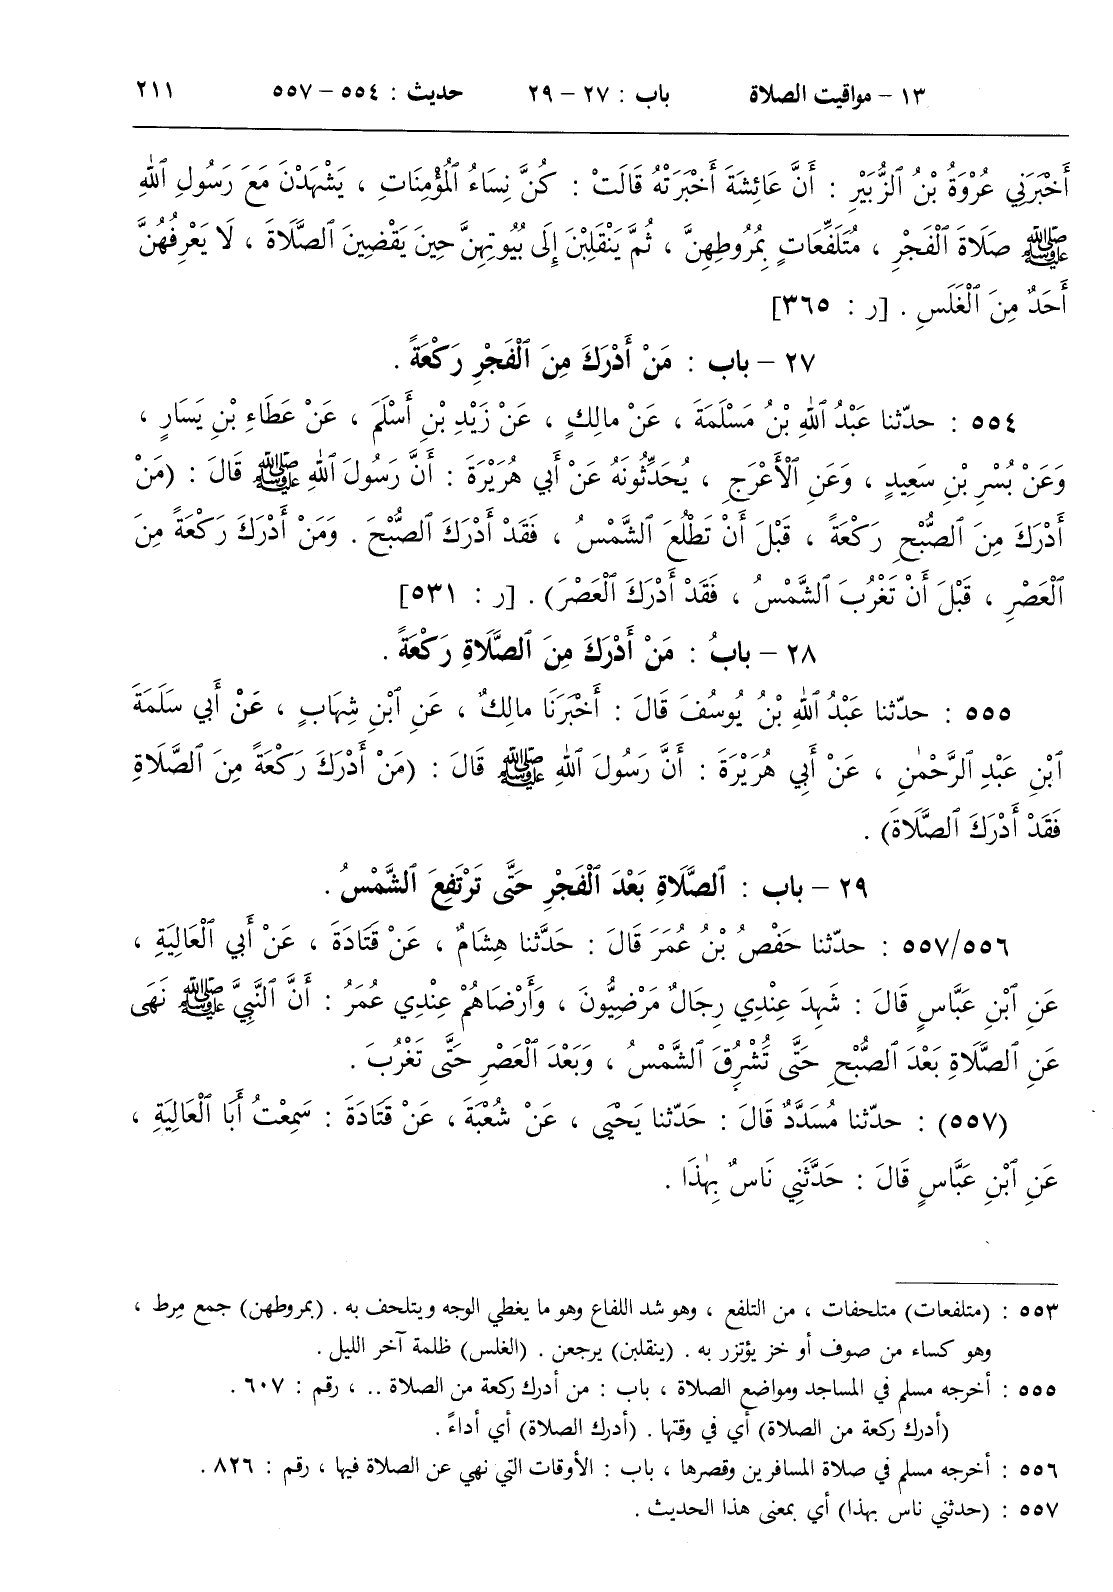 ١٣ - مواقيت الصلاة باب : ٢٧ - ٢٩ حديث : ٥٥٤ - ٥٥٧ ٢١١
أَخْبَرَنِي عُرْوَةُ بْنُ الزُّبَيْرِ : أَنَّ عَائِشَةَ أَخْبَرَتْهُ قَالَتْ : كُنَّ نِسَاءُ الْمُؤْمِنَاتِ ، يَشْهَدْنَ مَعَ رَسُولِ اللهِ
ﷺ صَلَاةَ الْفَجْرِ ، مُتَلَفِّعَاتٍ بِمُرُوطِهِنَّ ، ثُمَّ يَنْقَلِبْنَ إِلَى بُيُوتِهِنَّ حِينَ يَقْضِينَ الصَّلَاةَ ، لَا يَعْرِفُهُنَّ
أَحَدٌ مِنَ الْغَلَسِ . [ر : ٣٦٥]
٢٧ - باب : مَنْ أَدْرَكَ مِنَ الْفَجْرِ رَكْعَةً .
٥٥٤ : حدّثنا عَبْدُ اللهِ بْنُ مَسْلَمَةَ ، عَنْ مالِكٍ ، عَنْ زَيْدِ بْنِ أَسْلَمَ ، عَنْ عَطَاءِ بْنِ يَسَارٍ ،
وَعَنْ بُسْرِ بْنِ سَعِيدٍ ، وَعَنِ الْأَعْرَجِ ، يُحَدِّثُونَهُ عَنْ أَبِي هُرَيْرَةَ : أَنَّ رَسُولَ اللهِ ﷺ قَالَ : (مَنْ
أَدْرَكَ مِنَ الصُّبْحِ رَكْعَةً ، قَبْلَ أَنْ تَطْلُعَ الشَّمْسُ ، فَقَدْ أَدْرَكَ الصُّبْحَ . وَمَنْ أَدْرَكَ رَكْعَةً مِنَ
الْعَصْرِ ، قَبْلَ أَنْ تَغْرُبَ الشَّمْسُ ، فَقَدْ أَدْرَكَ الْعَصْرَ) . [ر : ٥٣١]
٢٨ - بابُ : مَنْ أَدْرَكَ مِنَ الصَّلَاةِ رَكْعَةً .
٥٥٥ : حدّثنا عَبْدُ اللهِ بْنُ يُوسُفَ قَالَ : أَخْبَرَنَا مالِكٌ ، عَنِ ابْنِ شِهَابٍ ، عَنْ أَبِي سَلَمَةَ
ابْنِ عَبْدِ الرَّحْمٰنِ ، عَنْ أَبِي هُرَيْرَةَ : أَنَّ رَسُولَ اللهِ ﷺ قَالَ : (مَنْ أَدْرَكَ رَكْعَةً مِنَ الصَّلَاةِ
فَقَدْ أَدْرَكَ الصَّلَاةَ) .
٢٩ - باب : الصَّلَاةِ بَعْدَ الْفَجْرِ حَتَّى تَرْتَفِعَ الشَّمْسُ .
٥٥٧/٥٥٦ : حدّثنا حَفْصُ بْنُ عُمَرَ قَالَ : حَدَّثنا هِشَامٌ ، عَنْ قَتَادَةَ ، عَنْ أَبِي الْعَالِيَةِ ،
عَنِ ابْنِ عَبَّاسٍ قَالَ : شَهِدَ عِنْدِي رِجَالٌ مَرْضِيُّونَ ، وَأَرْضَاهُمْ عِنْدِي عُمَرُ : أَنَّ النَّبِيَّ ﷺ نَهَى
عَنِ الصَّلَاةِ بَعْدَ الصُّبْحِ حَتَّى تَُشْرُِقَ الشَّمْسُ ، وَبَعْدَ الْعَصْرِ حَتَّى تَغْرُبَ .
(٥٥٧) : حدّثنا مُسَدَّدٌ قَالَ : حَدّثنا يَحْيَى ، عَنْ شُعْبَةَ ، عَنْ قَتَادَةَ : سَمِعْتُ أَبَا الْعَالِيَةِ ،
عَنِ ابْنِ عَبَّاسٍ قَالَ : حَدَّثَنِي نَاسٌ بِهٰذَا .
٥٥٣ : (متلفعات) متلحفات ، من التلفع ، وهو شد اللفاع وهو ما يغطي الوجه ويتلحف به . (بمروطهن) جمع مِرط ،
وهو كساء من صوف أو خز يؤتزر به . (ينقلبن) يرجعن . (الغلس) ظلمة آخر الليل .
٥٥٥ : أخرجه مسلم في المساجد ومواضع الصلاة ، باب : من أدرك ركعة من الصلاة .. ، رقم : ٦٠٧ .
(أدرك ركعة من الصلاة) أي في وقتها . (أدرك الصلاة) أي أداءً .
٥٥٦ : أخرجه مسلم في صلاة المسافرين وقصرها ، باب : الأوقات التي نهي عن الصلاة فيها ، رقم : ٨٢٦ .
٥٥٧ : (حدثني ناس بهذا) أي بمعنى هذا الحديث .